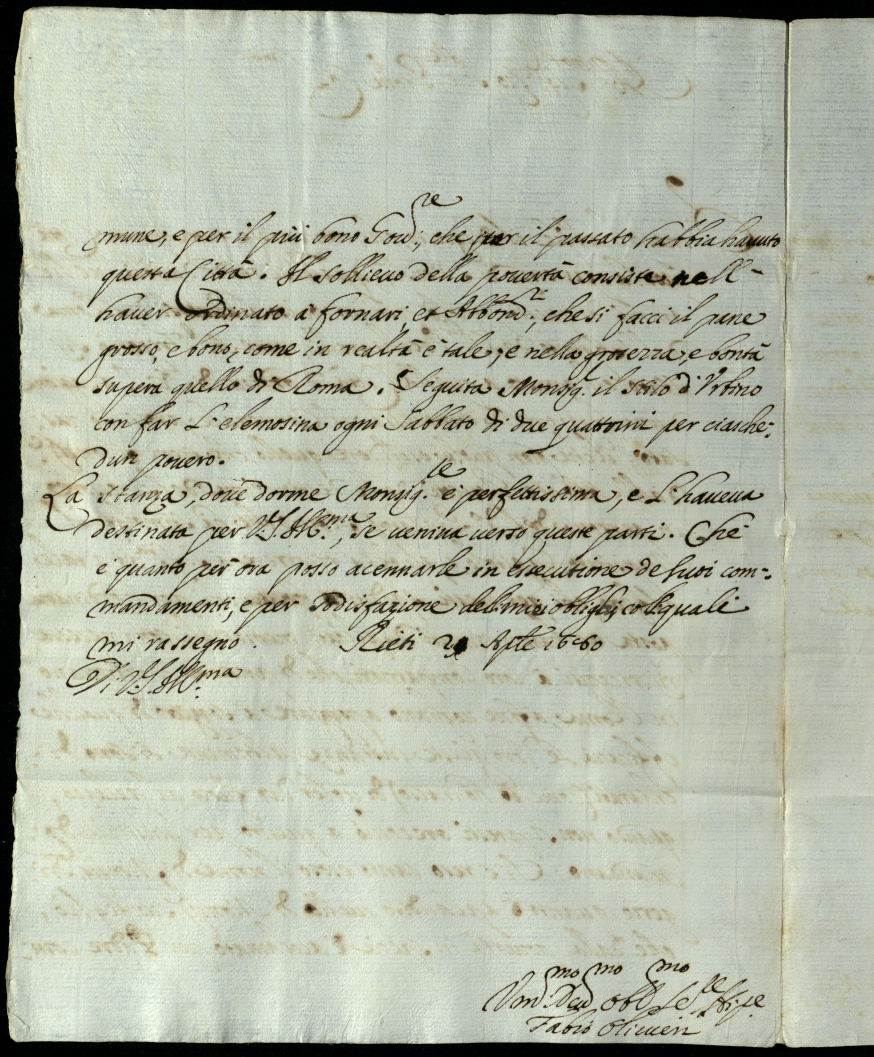 mune, e per il più bono Gov.re, che per il passato habbia hauuto
questa Città. Il sollieuo della pouertà consiste nell-
hauer ordinato à fornari, et Abbond.ri, che si facci il pane
grosso, e bono, come in realtà è tale, e nella grosezza, e bontà
supera quello di Roma. Seguita Monsig.re il stilo d'Vrbino
con far l'elemosina ogni Sabbato di due quattrini per ciasche=
dun pouero.
La stanza, doue dorme Monsig.re è perfettissima, e l'haueua
destinata per V.S. Ill.ma, se veniua verso queste parti. Che
è quanto per ora posso acennarle in essecutione de suoi com=
mandamenti, e per sodisfazione delli miei oblighi, colli quali
mi rassegno. Rieti Aple 1680
Di V.S. Ill.ma
Vm.mo Deu.mo obl.mo Se.re
Fabio Oliuieri